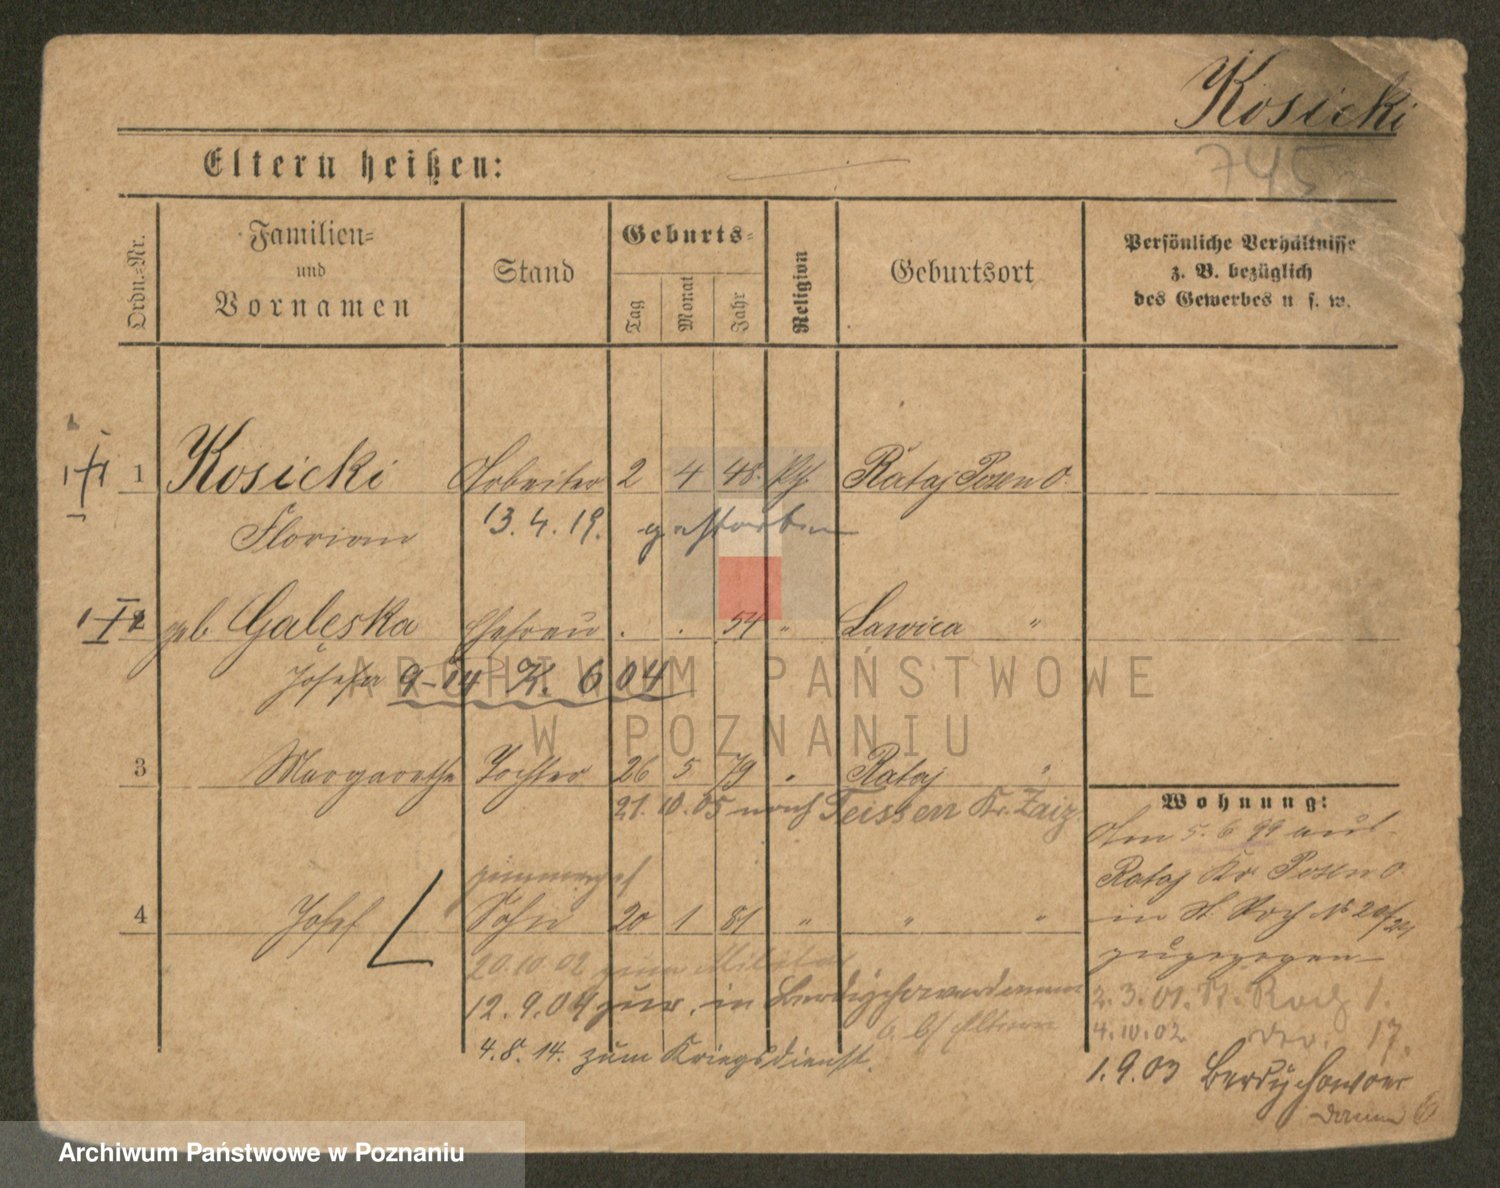 Kosicki
745
Eltern heißen:
Ordn.=Nr.
Familien=
und
Vornamen
Stand
Geburts=
Tag
Monat
Jahr
Religion
Geburtsort
Persönliche Verhältnisse
z. B. bezüglich
des Gewerbes u. s. w.
1 Kosicki Arbeiter 2 4 48. kth. Rataj Posen O.
Florian 13. 4. 19. gestorben
2 geb Galeska Ehefrau . . 54 " Lawica "
Josefa 9-14 K. 604
ARCHIWUM PAŃSTWOWE
W POZNANIU
3 Margarethe Tochter 26 5 79 " Rataj "
21. 10. 05 nach Teissen Kr. Zaiz.
Wohnung:
Am 5. 6 99 aus
Rataj Kr Posen O
in St. Roch No 20/21
zugezogen
4 Josef Sohn 20 1 81 " " "
20.10 02 zum Militär
12. 9. 04 zur. in Berdychowerdamm
b. Eltern
4. 8. 14. zum Kriegsdienst.
2. 3. 01. St. Roch 1.
4. 10. 02. 17.
1. 9. 03 Berdychower
damm 6
Archiwum Państwowe w Poznaniu